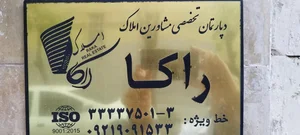 دپارتمان تخصصی مشاورین املاک
املاک
RAKA
REAL ESTATE
راکا
راکا
خط ویژه : ۳۳۳۳۷۵۰۱-۳
ISO
9001:2015
۰۹۲۱۹۰۹۱۵۳۳